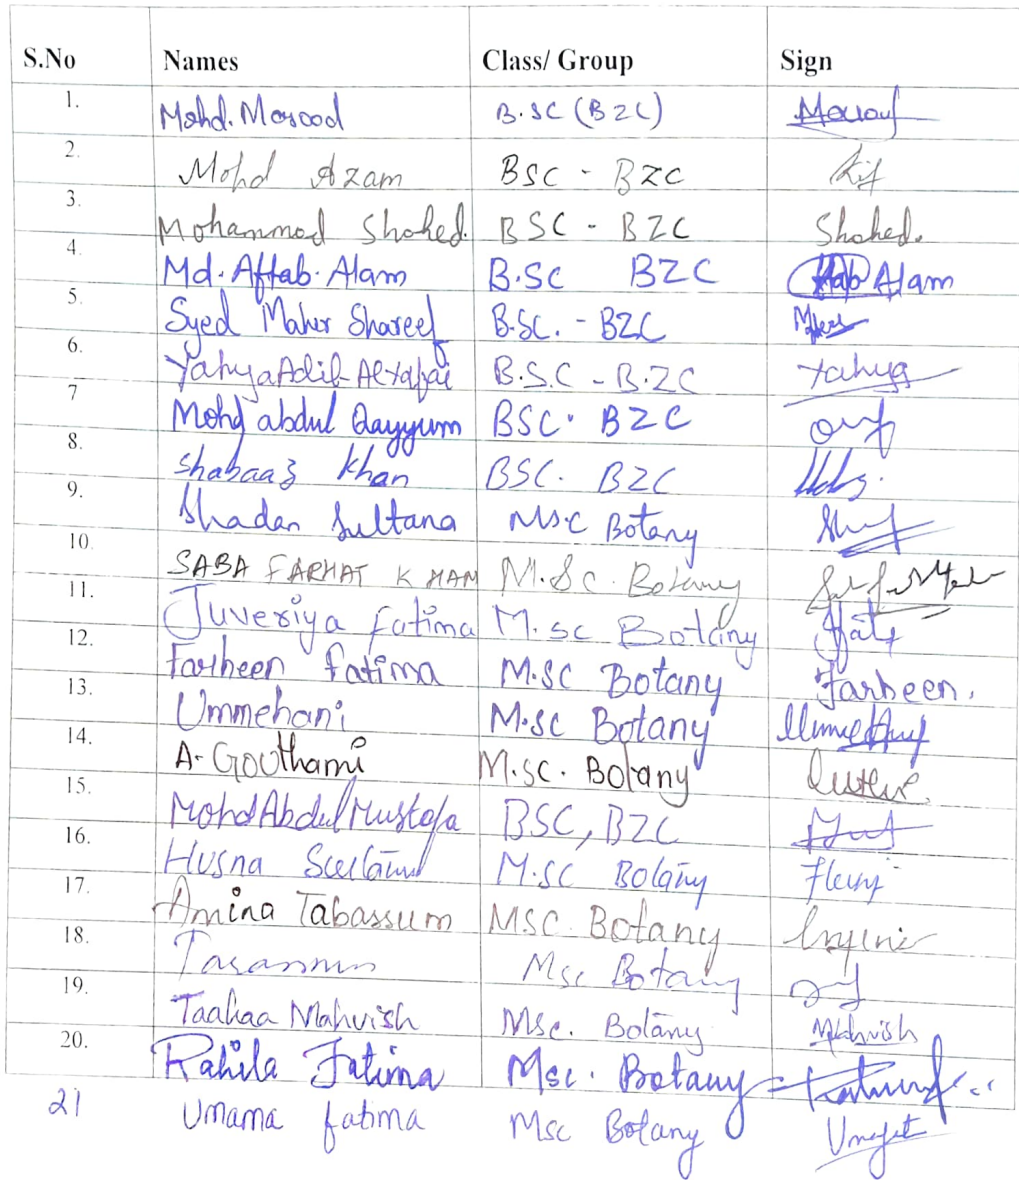 S.No Names Class/ Group Sign
1. Mohd. Masood B.SC (BZC)
2. Mohd Azam BSC - BZC
3. Mohammod Shohed. BSC - BZC Shohed.
4. Md. Aftab. Alam B.SC BZC Alam
5. Syed Maher Shareef B.SC. - BZC
6. Yahya Adil Al-Yafai B.S.C - B.ZC Yahya
7 Mohd abdul Qayyum BSC. BZC
8. Shabaaz Khan BSC. BZC
9. Shadan Sultana MSC Botany
10. SABA FARHAT KHAN M.Sc. Botany
11. Juveriya fatima M.sc Botany
12. Farheen fatima M.SC Botany Farheen.
13. Ummehani M.SC Botany
14. A. Gouthami M.SC. Botany
15. Mohd Abdul Mustafa BSC, BZC
16. Husna M.SC Botany
17. Amina Tabassum MSC. Botany
18. Tarannum Msc Botany
19. Taahaa Mahvish Msc. Botany Mahvish
20. Rahila Fatima Msc. Botany
21 Umama fatima Msc Botany